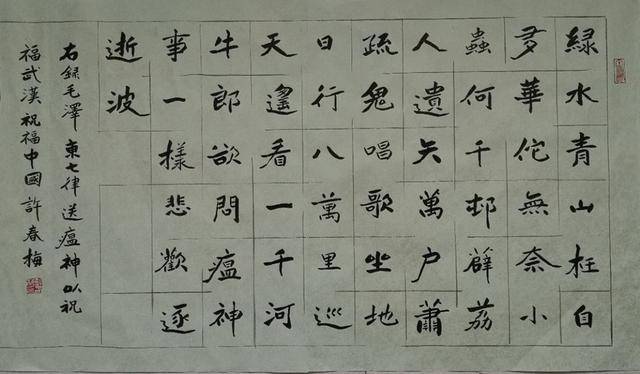 緑水青山枉自
多華佗無奈小
蟲何千邨薜荔
人遺矢萬户蕭
疏鬼唱歌坐地
日行八萬里巡
天遙看一千河
牛郎欲問瘟神
事一樣悲歡逐
逝波
右録毛澤東七律送瘟神以祝
福武漢祝福中國許春梅